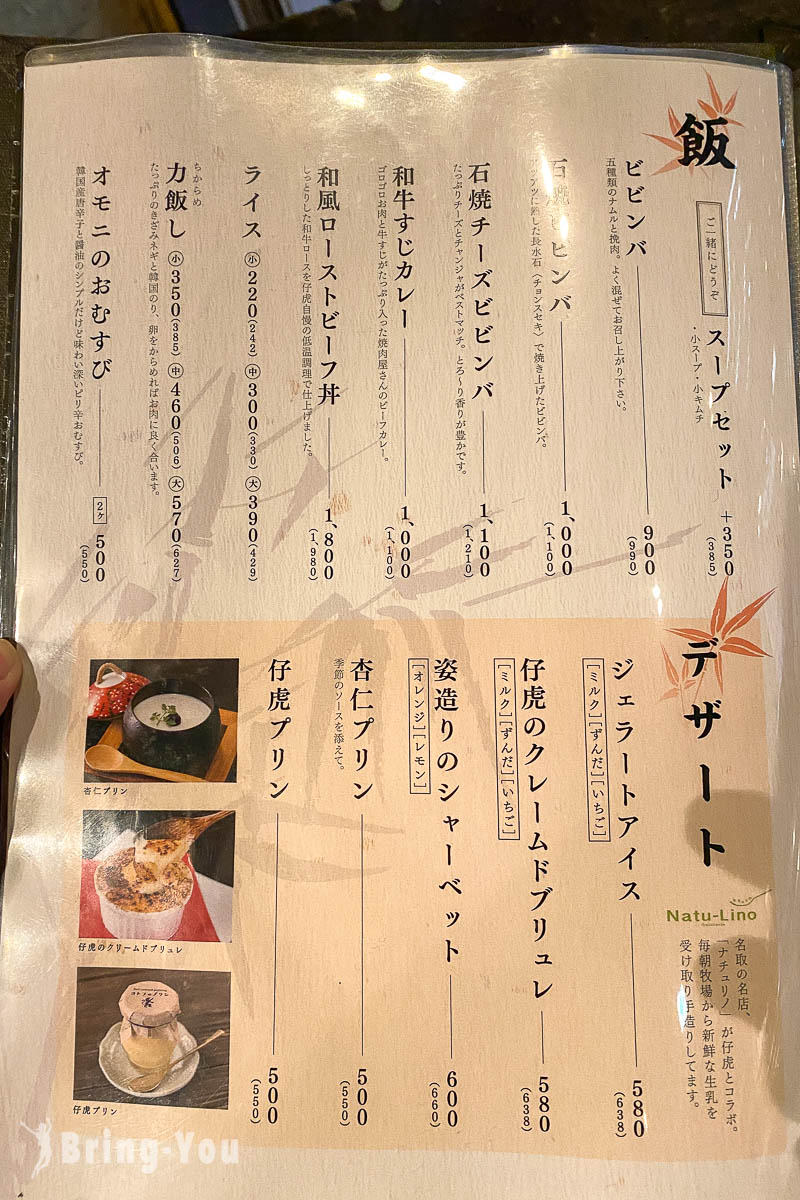 飯
ご一緒にどうぞ
スープセット ＋350
(385)
・小スープ・小キムチ
ビビンバ 900
(990)
五種類のナムルと挽肉。よく混ぜてお召し上がり下さい。
石焼ビビンバ 1,000
(1,100)
アツアツに熱した長水石（チョンスセキ）で焼き上げたビビンバ。
石焼チーズビビンバ 1,100
(1,210)
たっぷりチーズとチャンジャがベストマッチ。とろ〜り香りが豊かです。
和牛すじカレー 1,000
(1,100)
ゴロゴロお肉と牛すじがたっぷり入った焼肉屋さんのビーフカレー。
和風ローストビーフ丼 1,800
(1,980)
しっとりした和牛ロースを仔虎自慢の低温調理で仕上げました。
ライス ㊙小 220(242) ㊥ 300(330) 大 390(429)
ちからめ
力飯し 小 350(385) ㊥ 460(506) 大 570(627)
たっぷりのきざみネギと韓国のり、卵をからめればお肉に良く合います。
オモニのおむすび 2ヶ 500
(550)
韓国産唐辛子と醤油のシンプルだけど味わい深いピリ辛おむすび。
デザート
Natu-Lino
名取の名店、
「ナチュリノ」が仔虎とコラボ。
毎朝牧場から新鮮な生乳を
受け取り手造りしてます。
ジェラートアイス 580
(638)
[ミルク][ずんだ][いちご]
仔虎のクレームドブリュレ 580
(638)
[ミルク][ずんだ][いちご]
姿造りのシャーベット 600
(660)
[オレンジ][レモン]
杏仁プリン 500
(550)
季節のソースを添えて。
仔虎プリン 500
(550)
杏仁プリン
仔虎のクリームドブリュレ
仔虎プリン
Bring-You